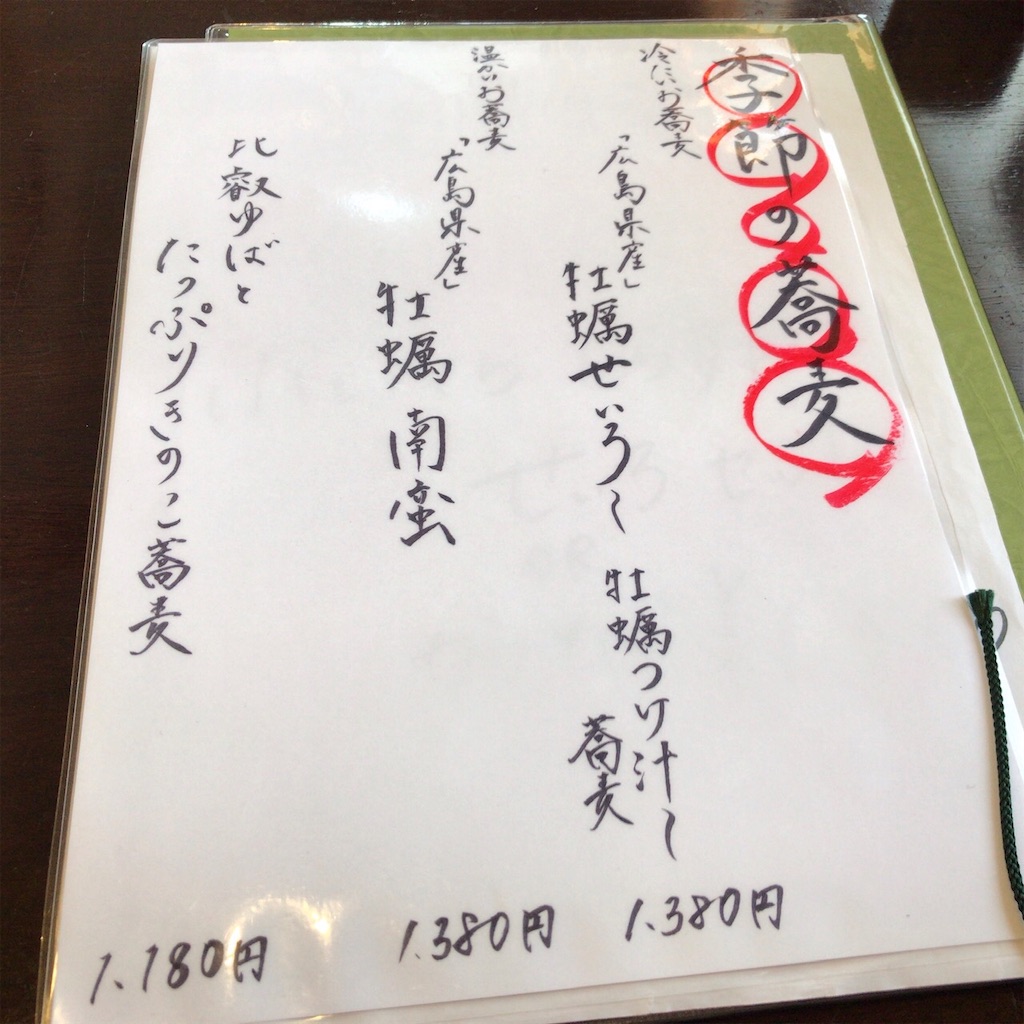 季節の蕎麦
冷たいお蕎麦
「広島県産」
牡蠣せいろ～
牡蠣つけ汁～
蕎麦
1.380円
温かいお蕎麦
「広島県産」
牡蠣南蛮
1.380円
比叡ゆばと
たっぷりきのこ蕎麦
1.180円